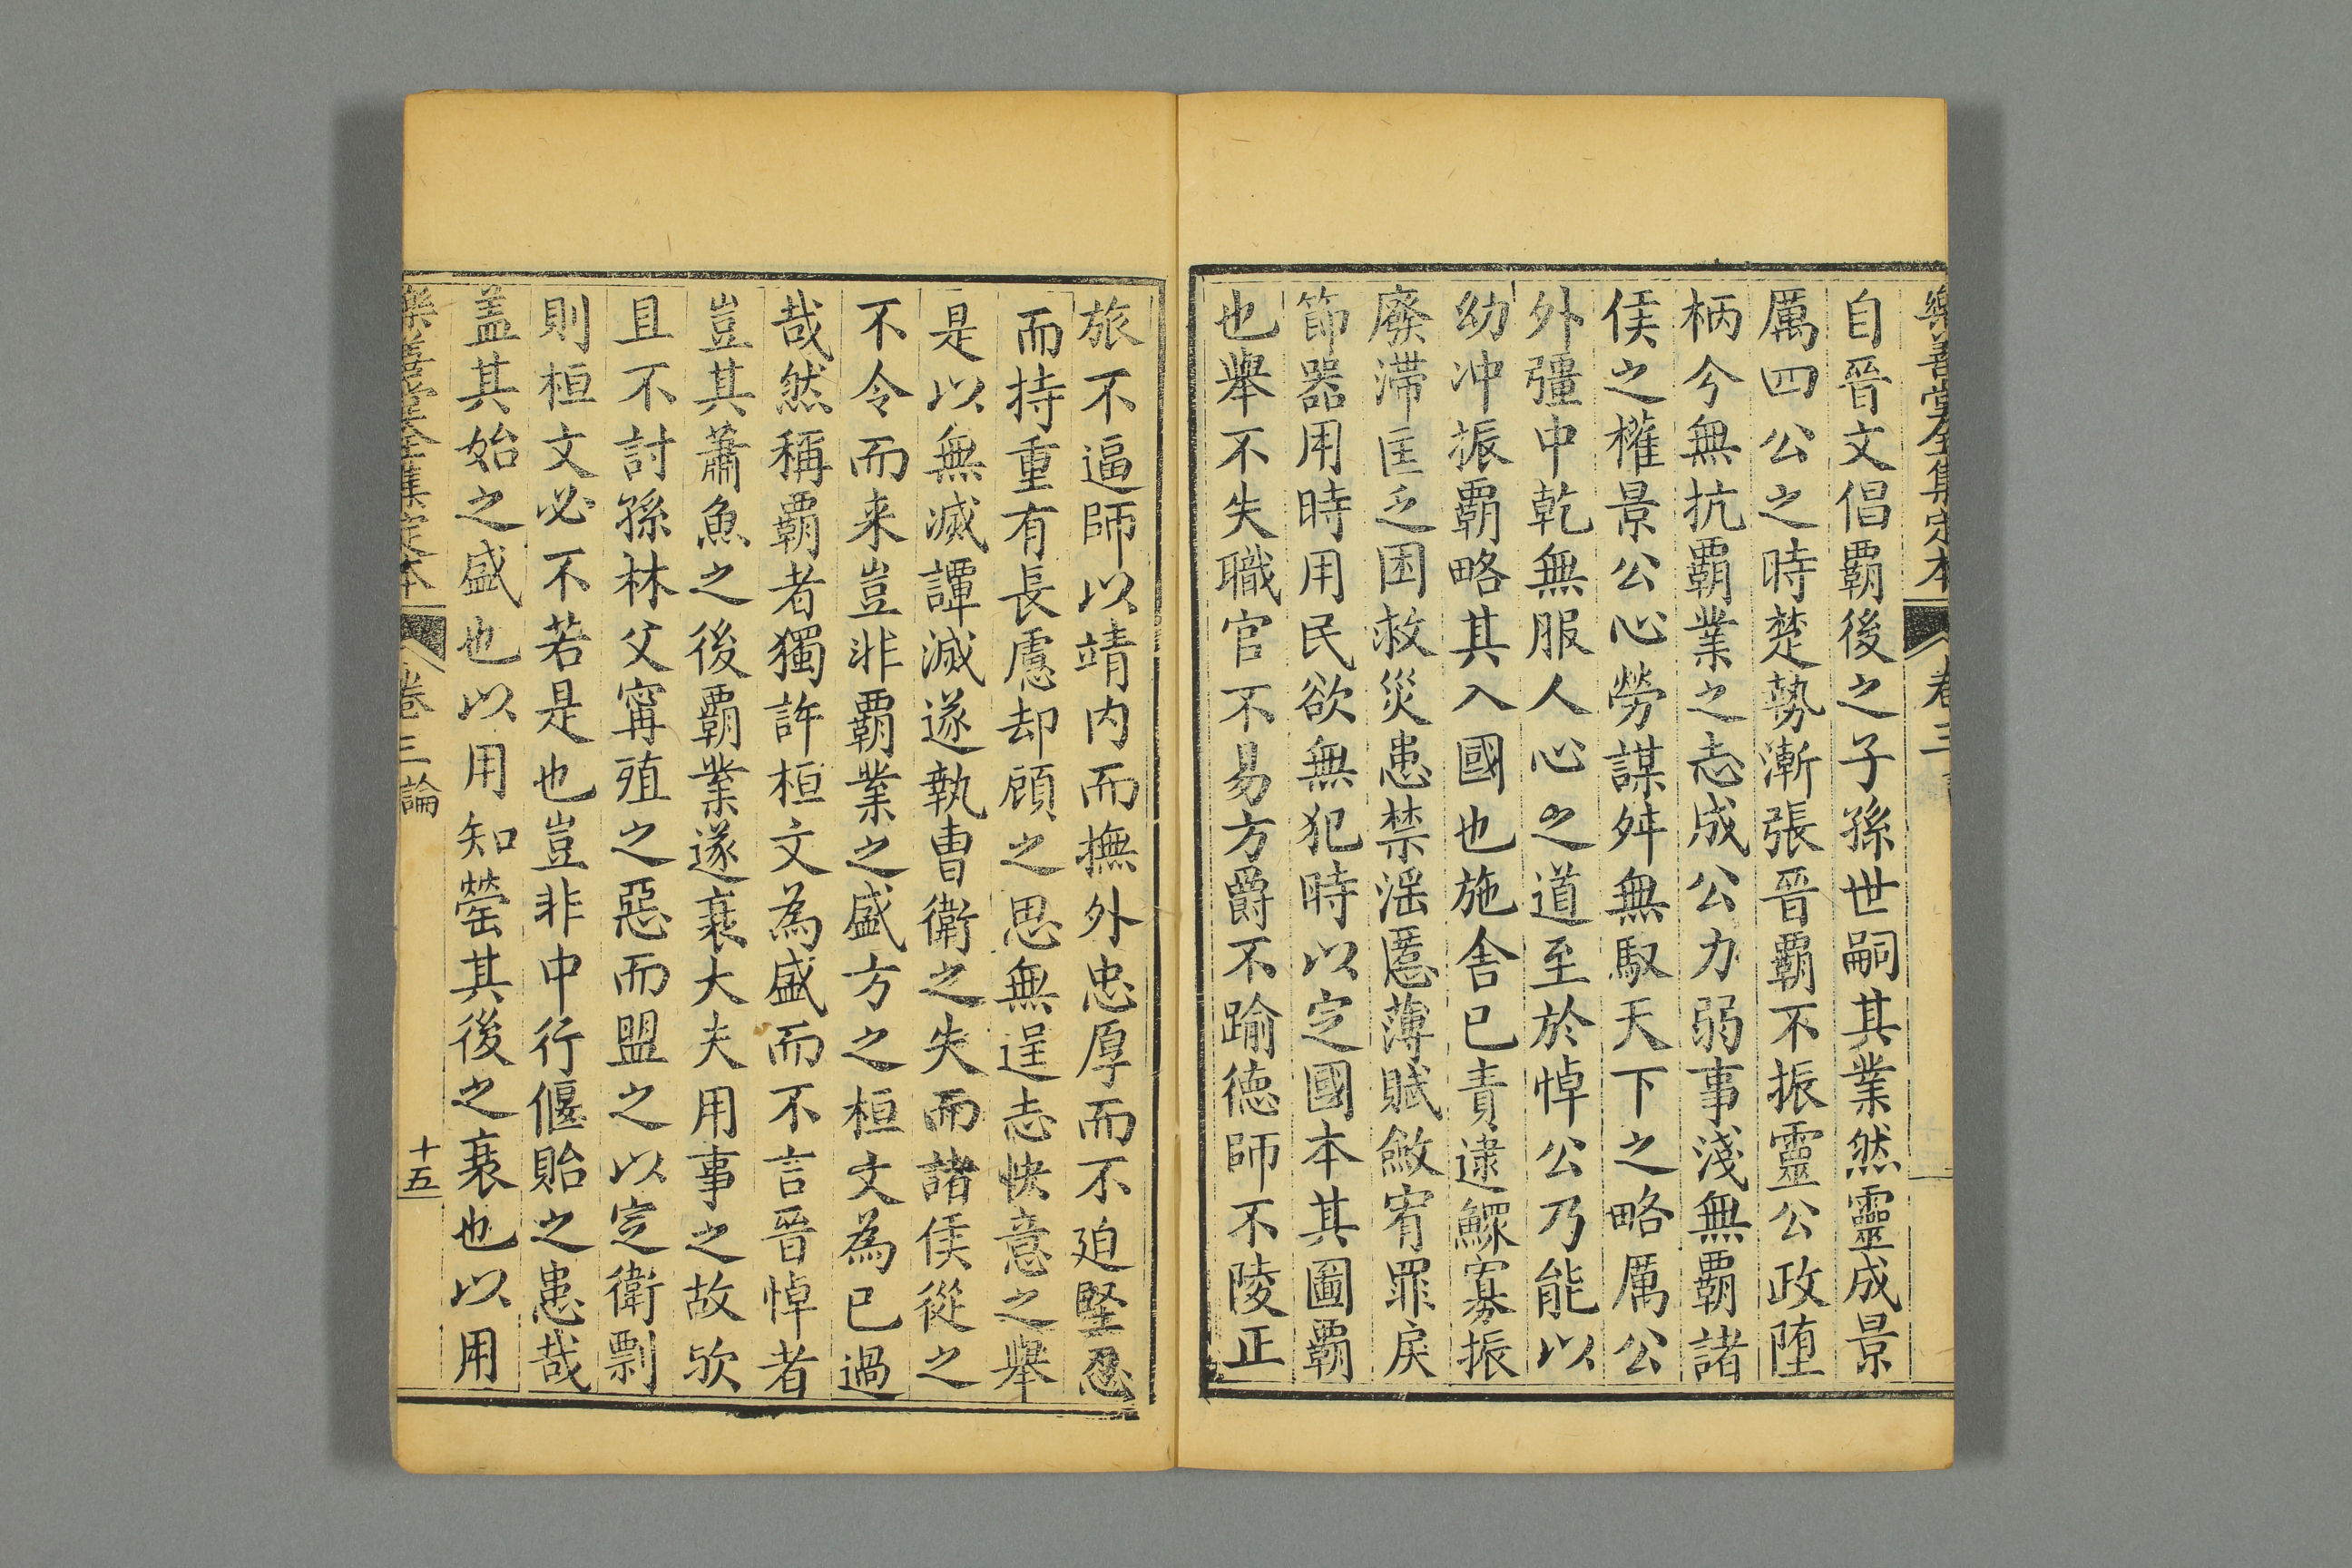 樂善堂全集定本 卷三
自晉文倡覇後之子孫世嗣其業然靈成景
厲四公之時楚勢漸張晉覇不振靈公政墮
柄兮無抗覇業之志成公力弱事淺無覇諸
侯之權景公心勞謀舛無馭天下之略厲公
外彊中乾無服人心之道至於悼公乃能以
幼冲振覇略其入國也施舍已責逮鰥寡振
廢滯匡乏困救災患禁淫慝薄賦斂宥罪戾
節器用時用民欲無犯時以定國本其圖覇
也舉不失職官不易方爵不踰德師不陵正
旅不逼師以靖内而撫外忠厚而不迫堅忍
而持重有長慮却顧之思無逞志快意之舉
是以無滅譚滅遂執曹衛之失而諸侯從之
不令而来豈非覇業之盛方之桓文為已過
哉然稱覇者獨許桓文為盛而不言晉悼者
豈其蕭魚之後覇業遂衰大夫用事之故欤
且不討孫林父甯殖之惡而盟之以定衛剽
則桓文必不若是也豈非中行偃貽之患哉
盖其始之盛也以用知罃其後之衰也以用
樂善堂全集定本 卷三論 十五